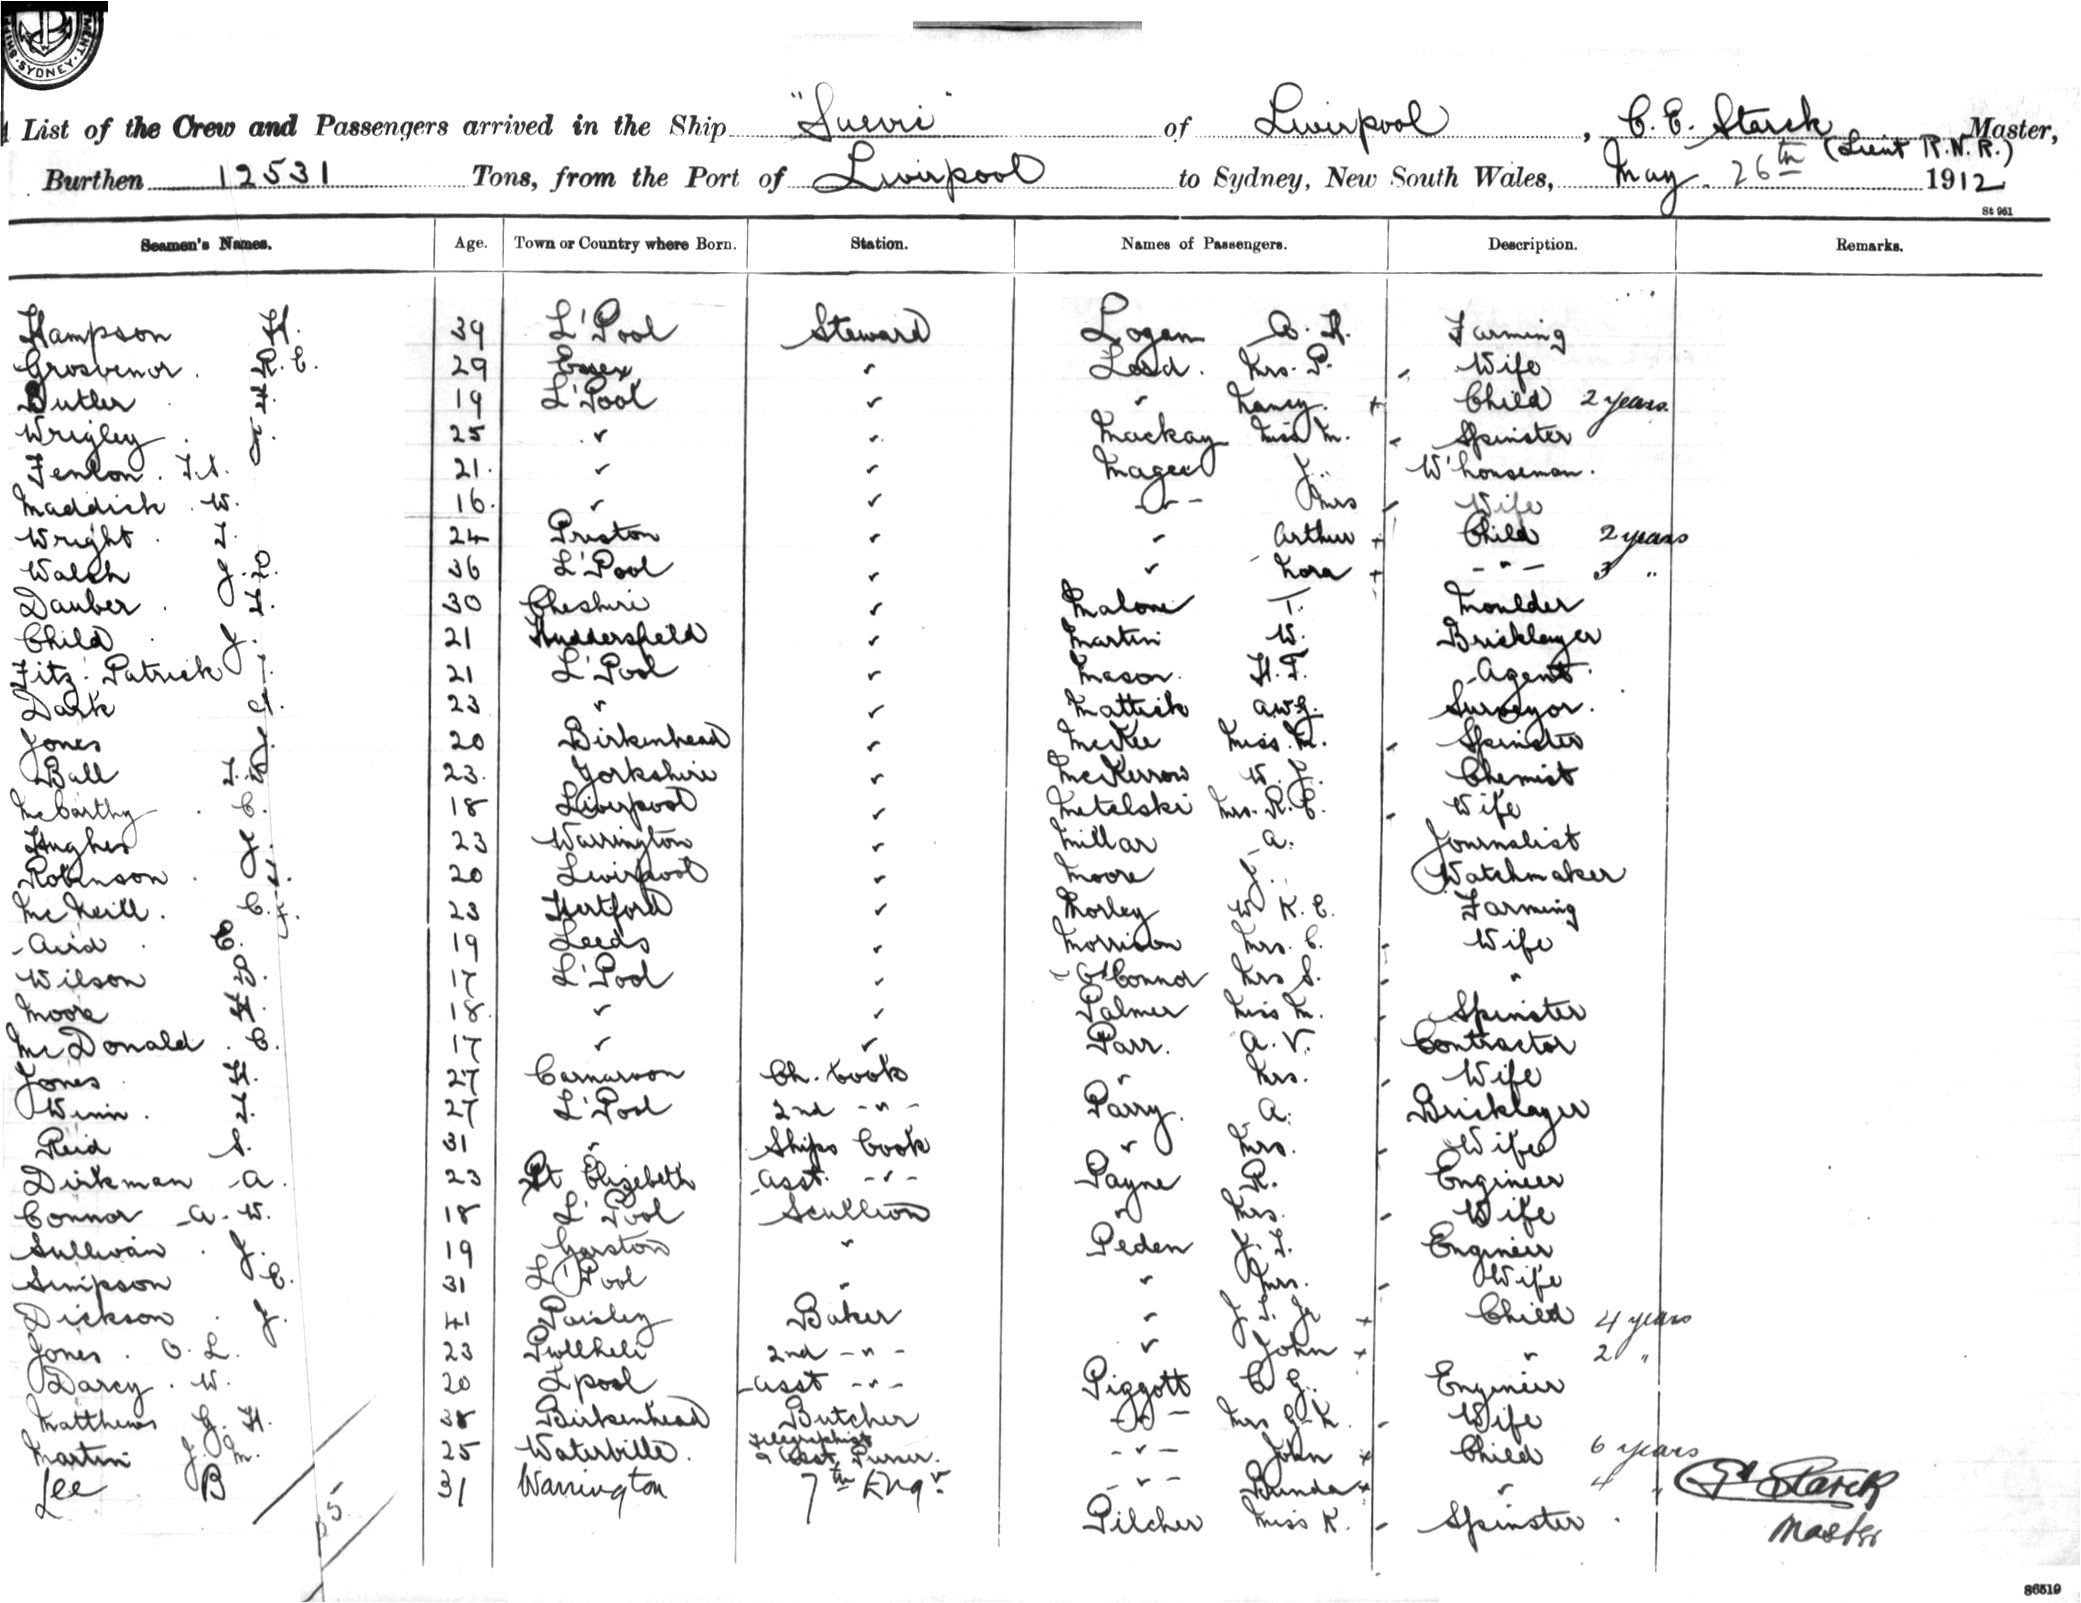 MENT. SHIP
SYDNEY.
List of the Crew and Passengers arrived in the Ship "Suevic" of Liverpool, C. E. Starck Master,
(Lieut R.N.R.)
Burthen 12531 Tons, from the Port of Liverpool to Sydney, New South Wales, May 26th 1912
St 961
Seamen's Names. Age. Town or Country where Born. Station. Names of Passengers. Description. Remarks.
Hampson H. 39 L'Pool Steward Logan A. H. Farming
Grosvenor R. E. 29 Essex " Lead Mrs. P. Wife
Butler H. 19 L'Pool " " Nancy + Child 2 years
Wrigley J. 25 " " Mackay Miss M. Spinster
Fenlon 21 " " Magee J. W'houseman
Maddick W. 16 " " -"- Mrs Wife
Wright T. 24 Preston " " Arthur + Child 2 years
Walsh J. 36 L'Pool " " Nora + -"- 3 "
Dauber 30 Cheshire " Malone T. Moulder
Child J. 21 Huddersfield " Martin W. Bricklayer
Fitz-Patrick 21 L'Pool " Mason H. F. Agent
Dark G. 23 " " Mattick A W G. Surveyor
Jones J. 20 Birkenhead " McKee Miss M. Spinster
Ball 23 Yorkshire " McKerrow W. J. Chemist
McCarthy C. 18 Liverpool " Metelski Mrs. R. E. Wife
Hughes 23 Warrington " Millar A. Journalist
Robinson 20 Liverpool " Moore J. Watchmaker
McNeill C. 23 Hertford " Morley W K. E. Farming
Aird E. 19 Leeds " Morrison Mrs. C. Wife
Wilson B. 17 L'Pool " O'Connor Mrs S. "
Moore H. 18 " " Palmer Miss M. Spinster
McDonald C. 17 " " Parr A. V. Contractor
Jones H. 27 Carnarvon Ch. Cook " Mrs. Wife
Winn T. 27 L'Pool 2nd -"- Parry A. Bricklayer
Reid S. 31 " Ships Cook " Mrs. Wife
Dirkman A. 23 Pt Elizabeth Asst. -"- Payne R. Engineer
Connor A. W. 18 L'Pool Scullion " Mrs. Wife
Sullivan J. 19 Garston " Peden J. T. Engineer
Simpson E. 31 L'Pool " " Mrs. Wife
Dickson J. 41 Paisley Baker " J. T. Jr + Child 4 years
Jones O. L. 23 Pwllheli 2nd -"- " John + " 2 "
Darcy W. 20 L'pool Asst -"- Piggott C G. Engineer
Matthews G. H. 38 Birkenhead Butcher -"- Mrs G. K. Wife
Martin J. M. 25 Waterville Telegraphist & Asst Purser. -"- John + Child 6 years
Lee B 31 Warrington 7th Engr. -"- Brenda + " 4 "
35
Pilcher Miss K. Spinster
C E Starck
Master
86519